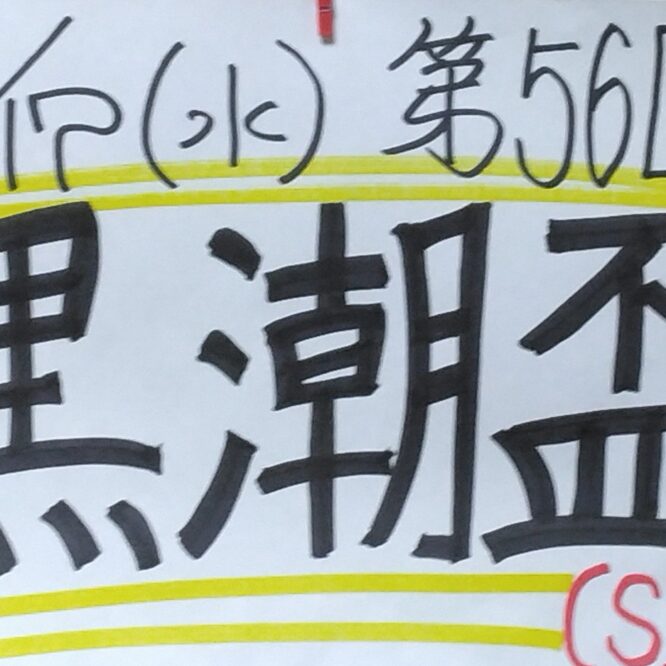 (水) 第56回
黒潮盃
(S